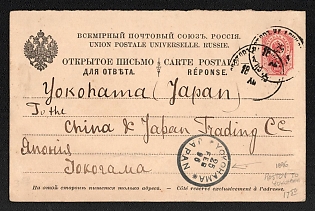 ВСЕМІРНЫЙ ПОЧТОВЫЙ СОЮЗЪ. РОССІЯ.
UNION POSTALE UNIVERSELLE. RUSSIE.
ОТКРЫТОЕ ПИСЬМО CARTE POSTALE
ДЛЯ ОТВѢТА. RÉPONSE.
Yokohama (Japan)
To the
China & Japan Trading Co
Японія
Іокогама
YOKOHAMA
25
FEB
JAPAN
1896
На этой сторонѣ пишется только адресъ. — Côté réservé exclusivement à l'adresse.